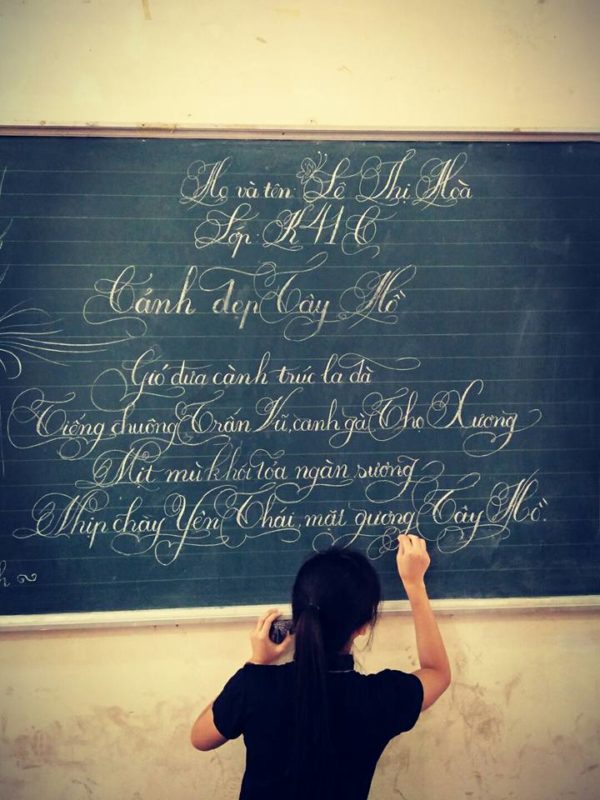 Họ và tên: Lê Thị Hoà
Lớp: K41C
Cảnh đẹp Tây Hồ
Gió đưa cành trúc la đà
Tiếng chuông Trấn Vũ, canh gà Thọ Xương
Mịt mù khói tỏa ngàn sương
Nhịp chày Yên Thái, mặt gương Tây Hồ.